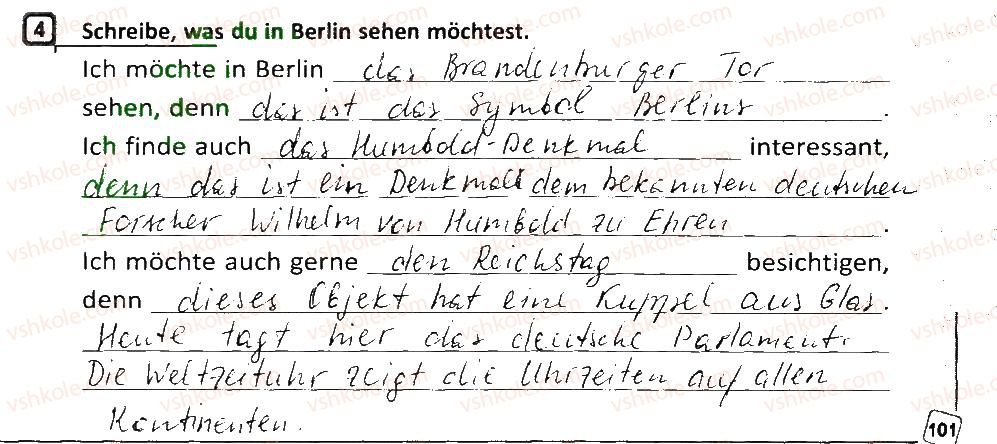 4 Schreibe, was du in Berlin sehen möchtest.
Ich möchte in Berlin das Brandenburger Tor
sehen, denn das ist das Symbol Berlins.
Ich finde auch das Humbold-Denkmal interessant,
denn das ist ein Denkmal dem bekannten deutschen
Forscher Wilhelm von Humbold zu Ehren.
Ich möchte auch gerne den Reichstag besichtigen,
denn dieses Objekt hat eine Kuppel aus Glas.
Heute tagt hier das deutsche Parlament.
Die Weltzeituhr zeigt die Uhrzeiten auf allen
Kontinenten.
101